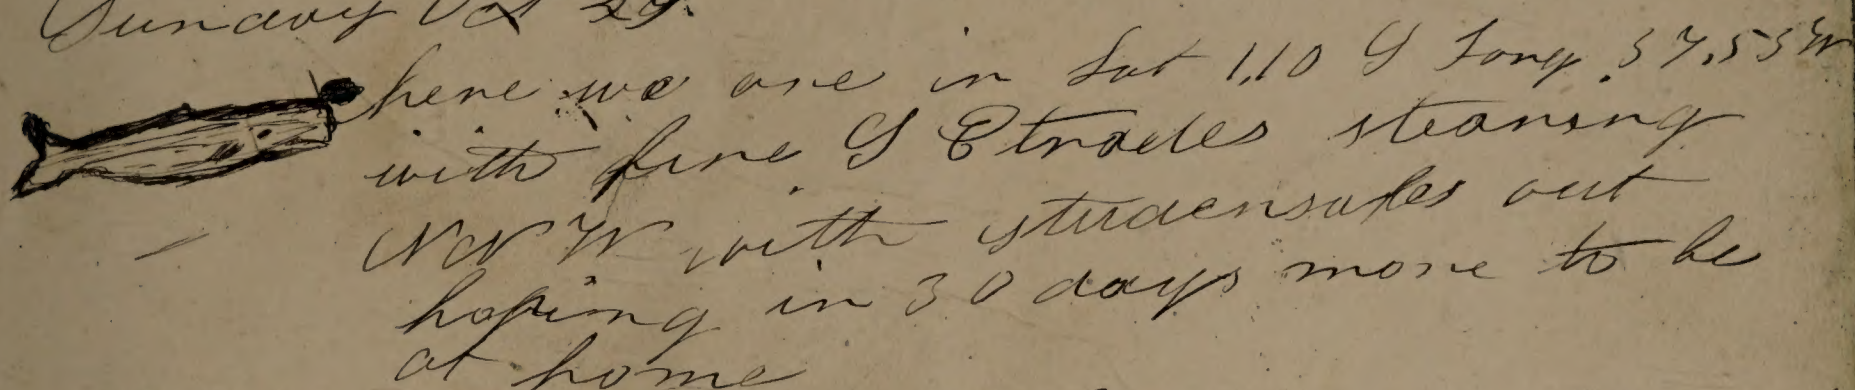 Sunday Oct 29.
here we are in Lat 1,10 S Long. 37,53 W
with fine S E trades stearing
N N W with studensales out
hoping in 30 days more to be
at home